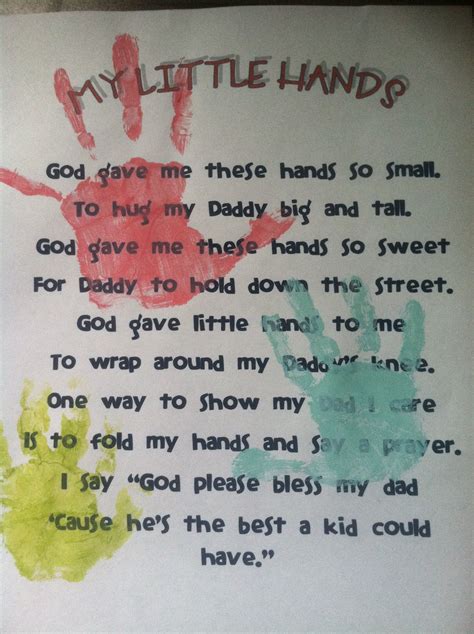 MY LITTLE HANDS
God gave me these hands so small.
To hug my Daddy big and tall.
God gave me these hands so sweet
For Daddy to hold down the street.
God gave little hands to me
To wrap around my Daddy's knee.
One way to show my Dad I care
Is to fold my hands and say a prayer.
I say "God please bless my dad
'Cause he's the best a kid could
have."